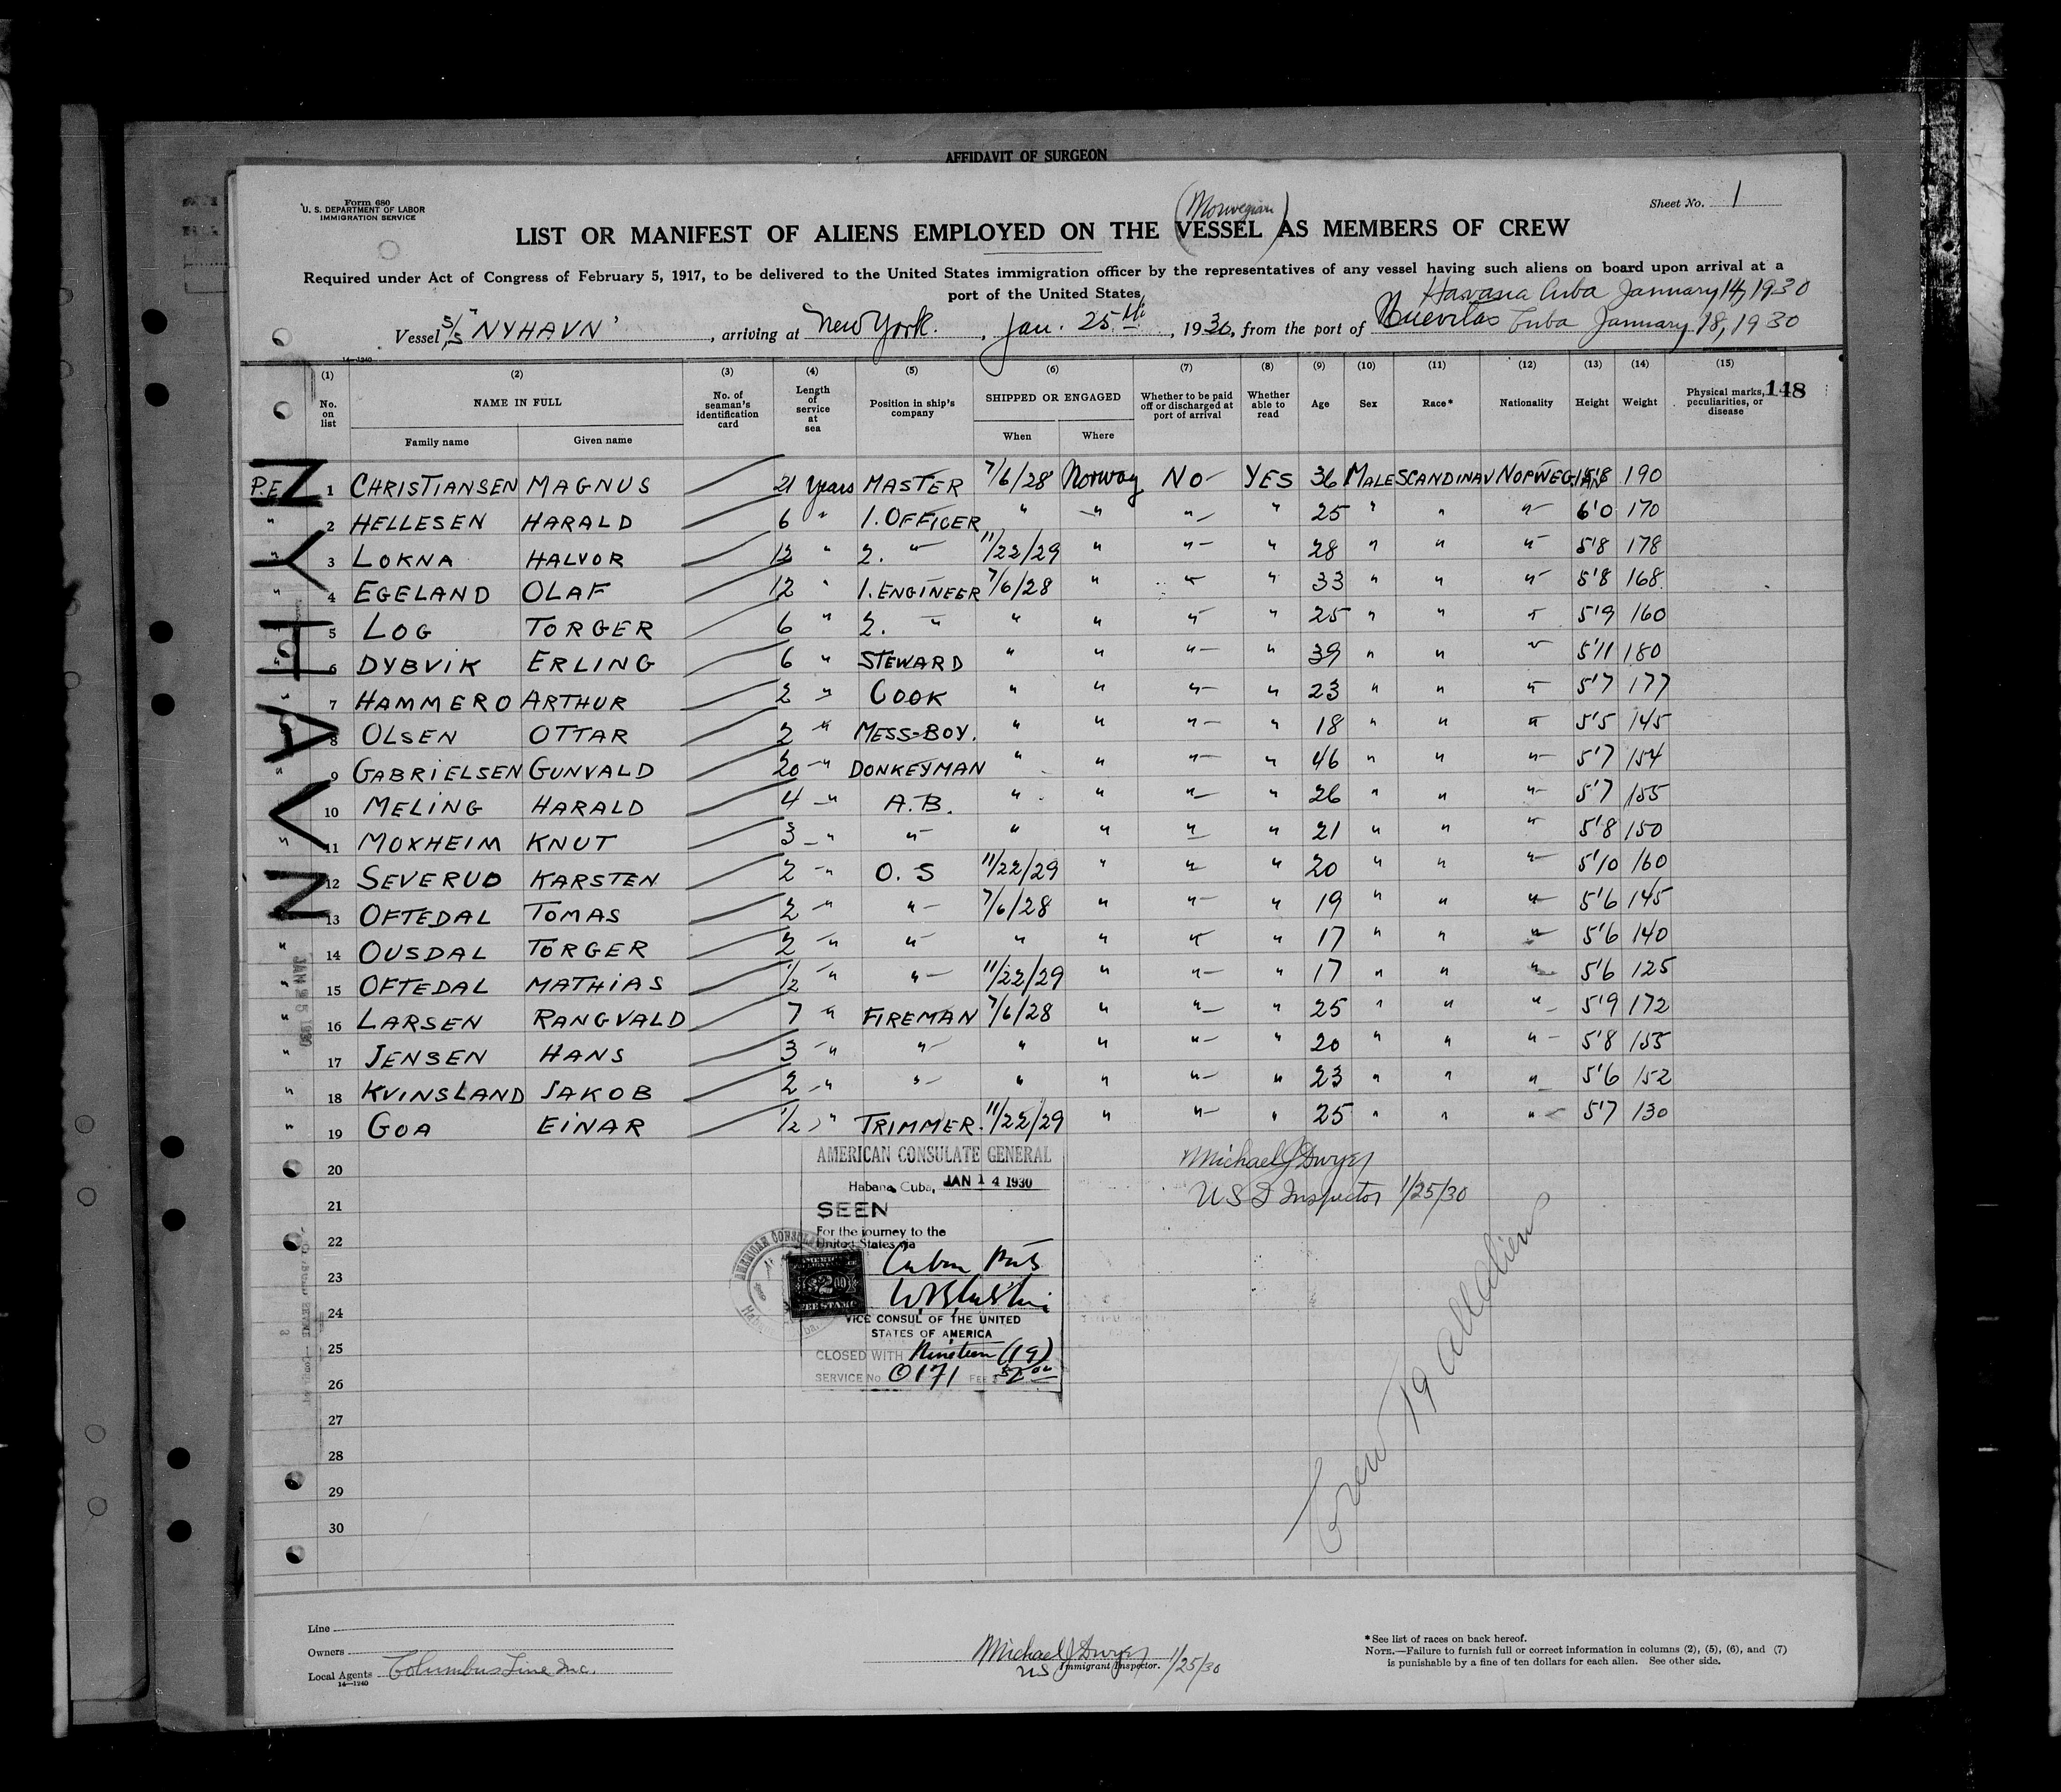 AFFIDAVIT OF SURGEON
Form 680
U. S. DEPARTMENT OF LABOR
IMMIGRATION SERVICE
Sheet No. 1
(Norwegian)
LIST OR MANIFEST OF ALIENS EMPLOYED ON THE VESSEL AS MEMBERS OF CREW
Required under Act of Congress of February 5, 1917, to be delivered to the United States immigration officer by the representatives of any vessel having such aliens on board upon arrival at a
port of the United States
Havana Cuba January 14, 1930
Vessel S/S "NYHAVN", arriving at New York., Jan. 25th, 1930, from the port of Nuevitas Cuba January 18, 1930
14—1240
(1) (2) (3) (4) (5) (6) (7) (8) (9) (10) (11) (12) (13) (14) (15)
No. on list NAME IN FULL Family name Given name No. of seaman's identification card Length of service at sea Position in ship's company SHIPPED OR ENGAGED When Where Whether to be paid off or discharged at port of arrival Whether able to read Age Sex Race* Nationality Height Weight Physical marks, peculiarities, or disease
148
NYHAVN
P.E. 1 CHRISTIANSEN MAGNUS 21 years MASTER 7/6/28 Norway NO YES 36 MALE SCANDINAV NORWEGIAN 5'8 190
" 2 HELLESEN HARALD 6 " 1. OFFICER " " " " 25 " " " 6'0 170
" 3 LOKNA HALVOR 12 " 2. " 11/22/29 " " " 28 " " " 5'8 178
" 4 EGELAND OLAF 12 " 1. ENGINEER 7/6/28 " " " 33 " " " 5'8 168
5 LOG TORGER 6 " 2. " " " " " 25 " " " 5'9 160
6 DYBVIK ERLING 6 " STEWARD " " " " 39 " " " 5'11 180
" 7 HAMMERO ARTHUR 2 " COOK " " " " 23 " " " 5'7 177
8 OLSEN OTTAR 2 " MESS-BOY. " " " " 18 " " " 5'5 145
" 9 GABRIELSEN GUNVALD 20 " DONKEYMAN " " " " 46 " " " 5'7 154
" 10 MELING HARALD 4 " A.B. " " " " 26 " " " 5'7 155
" 11 MOXHEIM KNUT 3 " " " " " " 21 " " " 5'8 150
12 SEVERUD KARSTEN 2 " O.S 11/22/29 " " " 20 " " " 5'10 160
13 OFTEDAL TOMAS 2 " " 7/6/28 " " " 19 " " " 5'6 145
" 14 OUSDAL TORGER 2 " " " " " " 17 " " " 5'6 140
" 15 OFTEDAL MATHIAS 1/2 " " 11/22/29 " " " 17 " " " 5'6 125
" 16 LARSEN RANGVALD 7 " FIREMAN 7/6/28 " " " 25 " " " 5'9 172
" 17 JENSEN HANS 3 " " " " " " 20 " " " 5'8 155
" 18 KVINSLAND JAKOB 2 " " " " " " 23 " " " 5'6 152
" 19 GOA EINAR 1/2 " TRIMMER. 11/22/29 " " " 25 " " " 5'7 130
JAN 25 1930
20
21
22
23
24
25
26
27
28
29
30
AMERICAN CONSULATE GENERAL
Habana, Cuba, JAN 14 1930
SEEN
For the journey to the
United States via
Cuban Ports
AMERICAN
$2.00
FEE STAMP
VICE CONSUL OF THE UNITED
STATES OF AMERICA
CLOSED WITH Nineteen (19)
SERVICE No 0171 FEE $2.00
Michael J Dwyer
US I Inspector 1/25/30
Crew 19 all aliens
Line
Owners
Local Agents Columbus Line Inc.
14—1240
Michael J Dwyer
US Immigrant Inspector. 1/25/30
*See list of races on back hereof.
NOTE.—Failure to furnish full or correct information in columns (2), (5), (6), and (7)
is punishable by a fine of ten dollars for each alien. See other side.